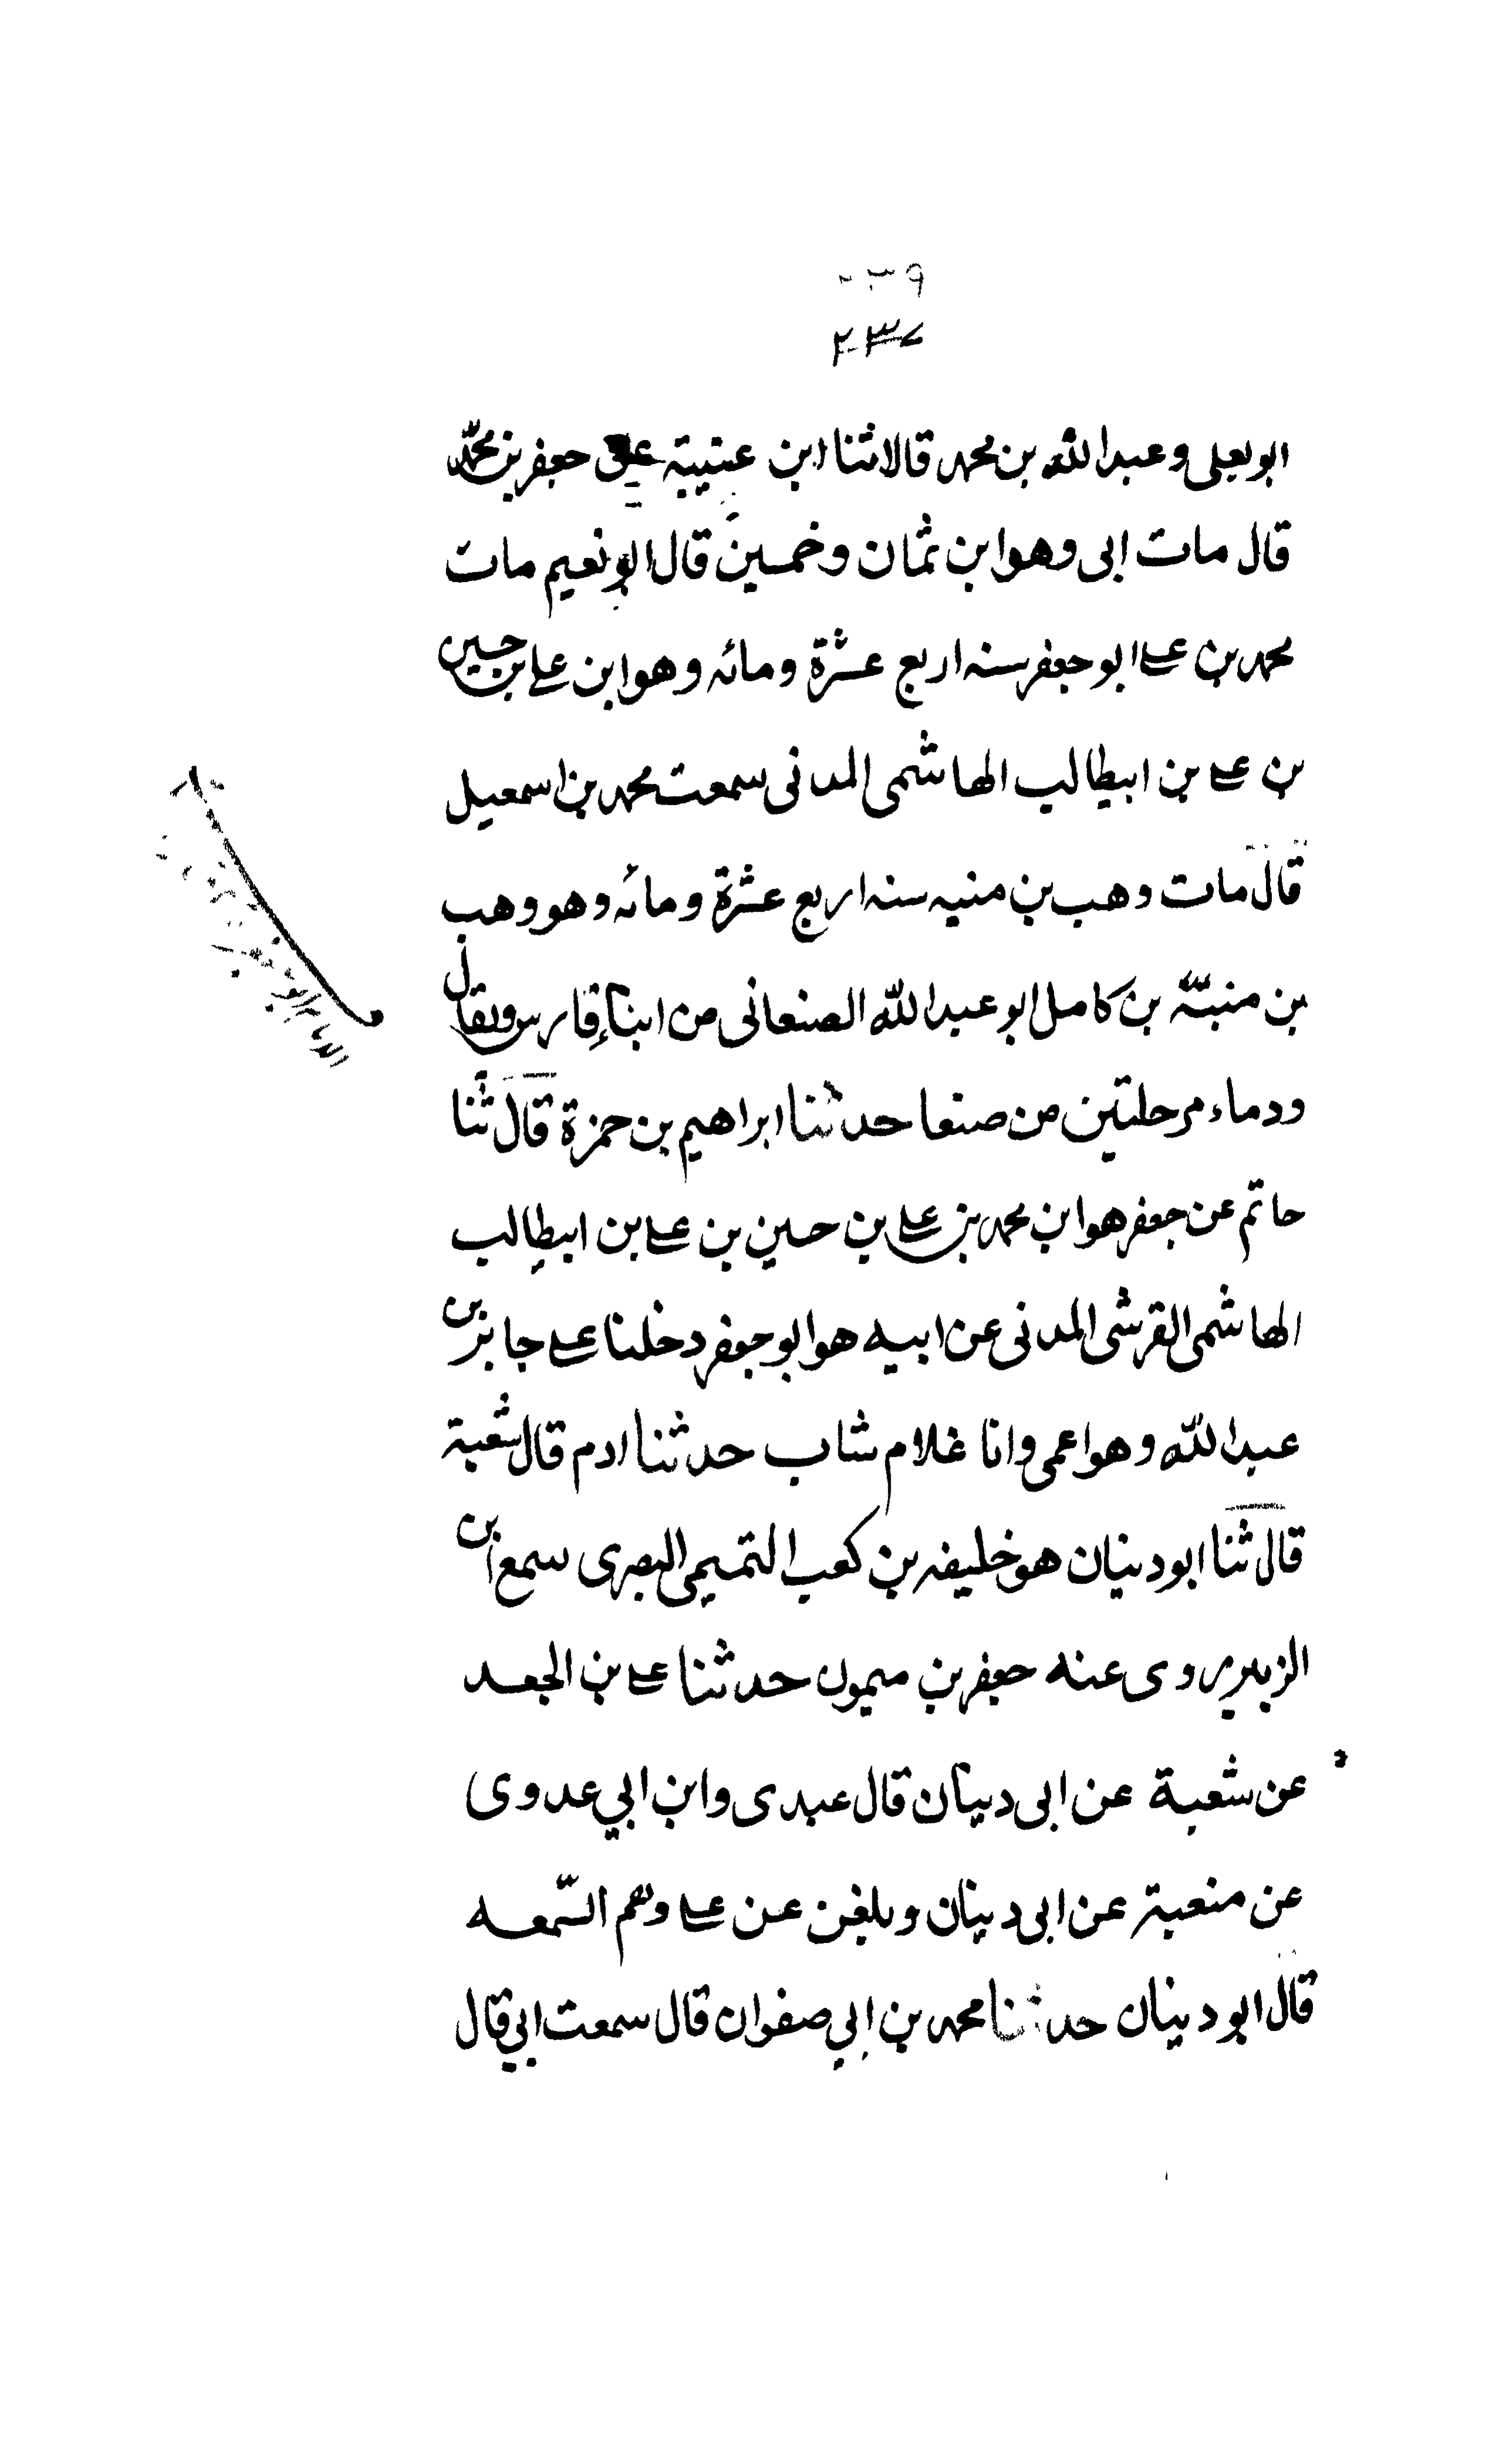 ٢٣٧
ابو يعلى وعبد الله بن محمد قالا ثنا ابن عيينة عن جعفر بن محمد
قال مات ابى وهو ابن ثمان وخمسين قال ابو نعيم مات
محمد بن على ابو جعفر سنه اربع عشرة ومائه وهو ابن على بن حسين
بن على بن ابيطالب الهاشمى المدنى سمعت محمد بن اسمعيل
قال مات وهب بن منبه سنه اربع عشرة ومائه وهو وهب
بن منبّه بن كامل ابو عبد الله الصنعانى من ابناء فارس ويقال
ودماء مرحلتين من صنعا حدثنا ابراهيم بن حمزة قال ثنا
حاتم عن جعفر هو ابن محمد بن على بن حسين بن على بن ابيطالب
الهاشمى القرشى المدنى عن ابيه هو ابو جعفر دخلنا على جابر بن
عبد الله وهو اعمى وانا غلام شاب حدثنا ادم قال شعبة
قال ثنا ابو دبيان هو خليفه بن كعب التميمى البصرى سمع ابن
الزبير روى عنه جعفر بن ميمون حدثنا على بن الجعد
عن شعبة عن ابى دبيان قال عبدى وابن ابي عدوى
عن منعبة عن ابى دبيان وبلغن عن على وهم السّمعه
قال ابو دبيان حدثنا محمد بن ابي صفوان قال سمعت ابي قال